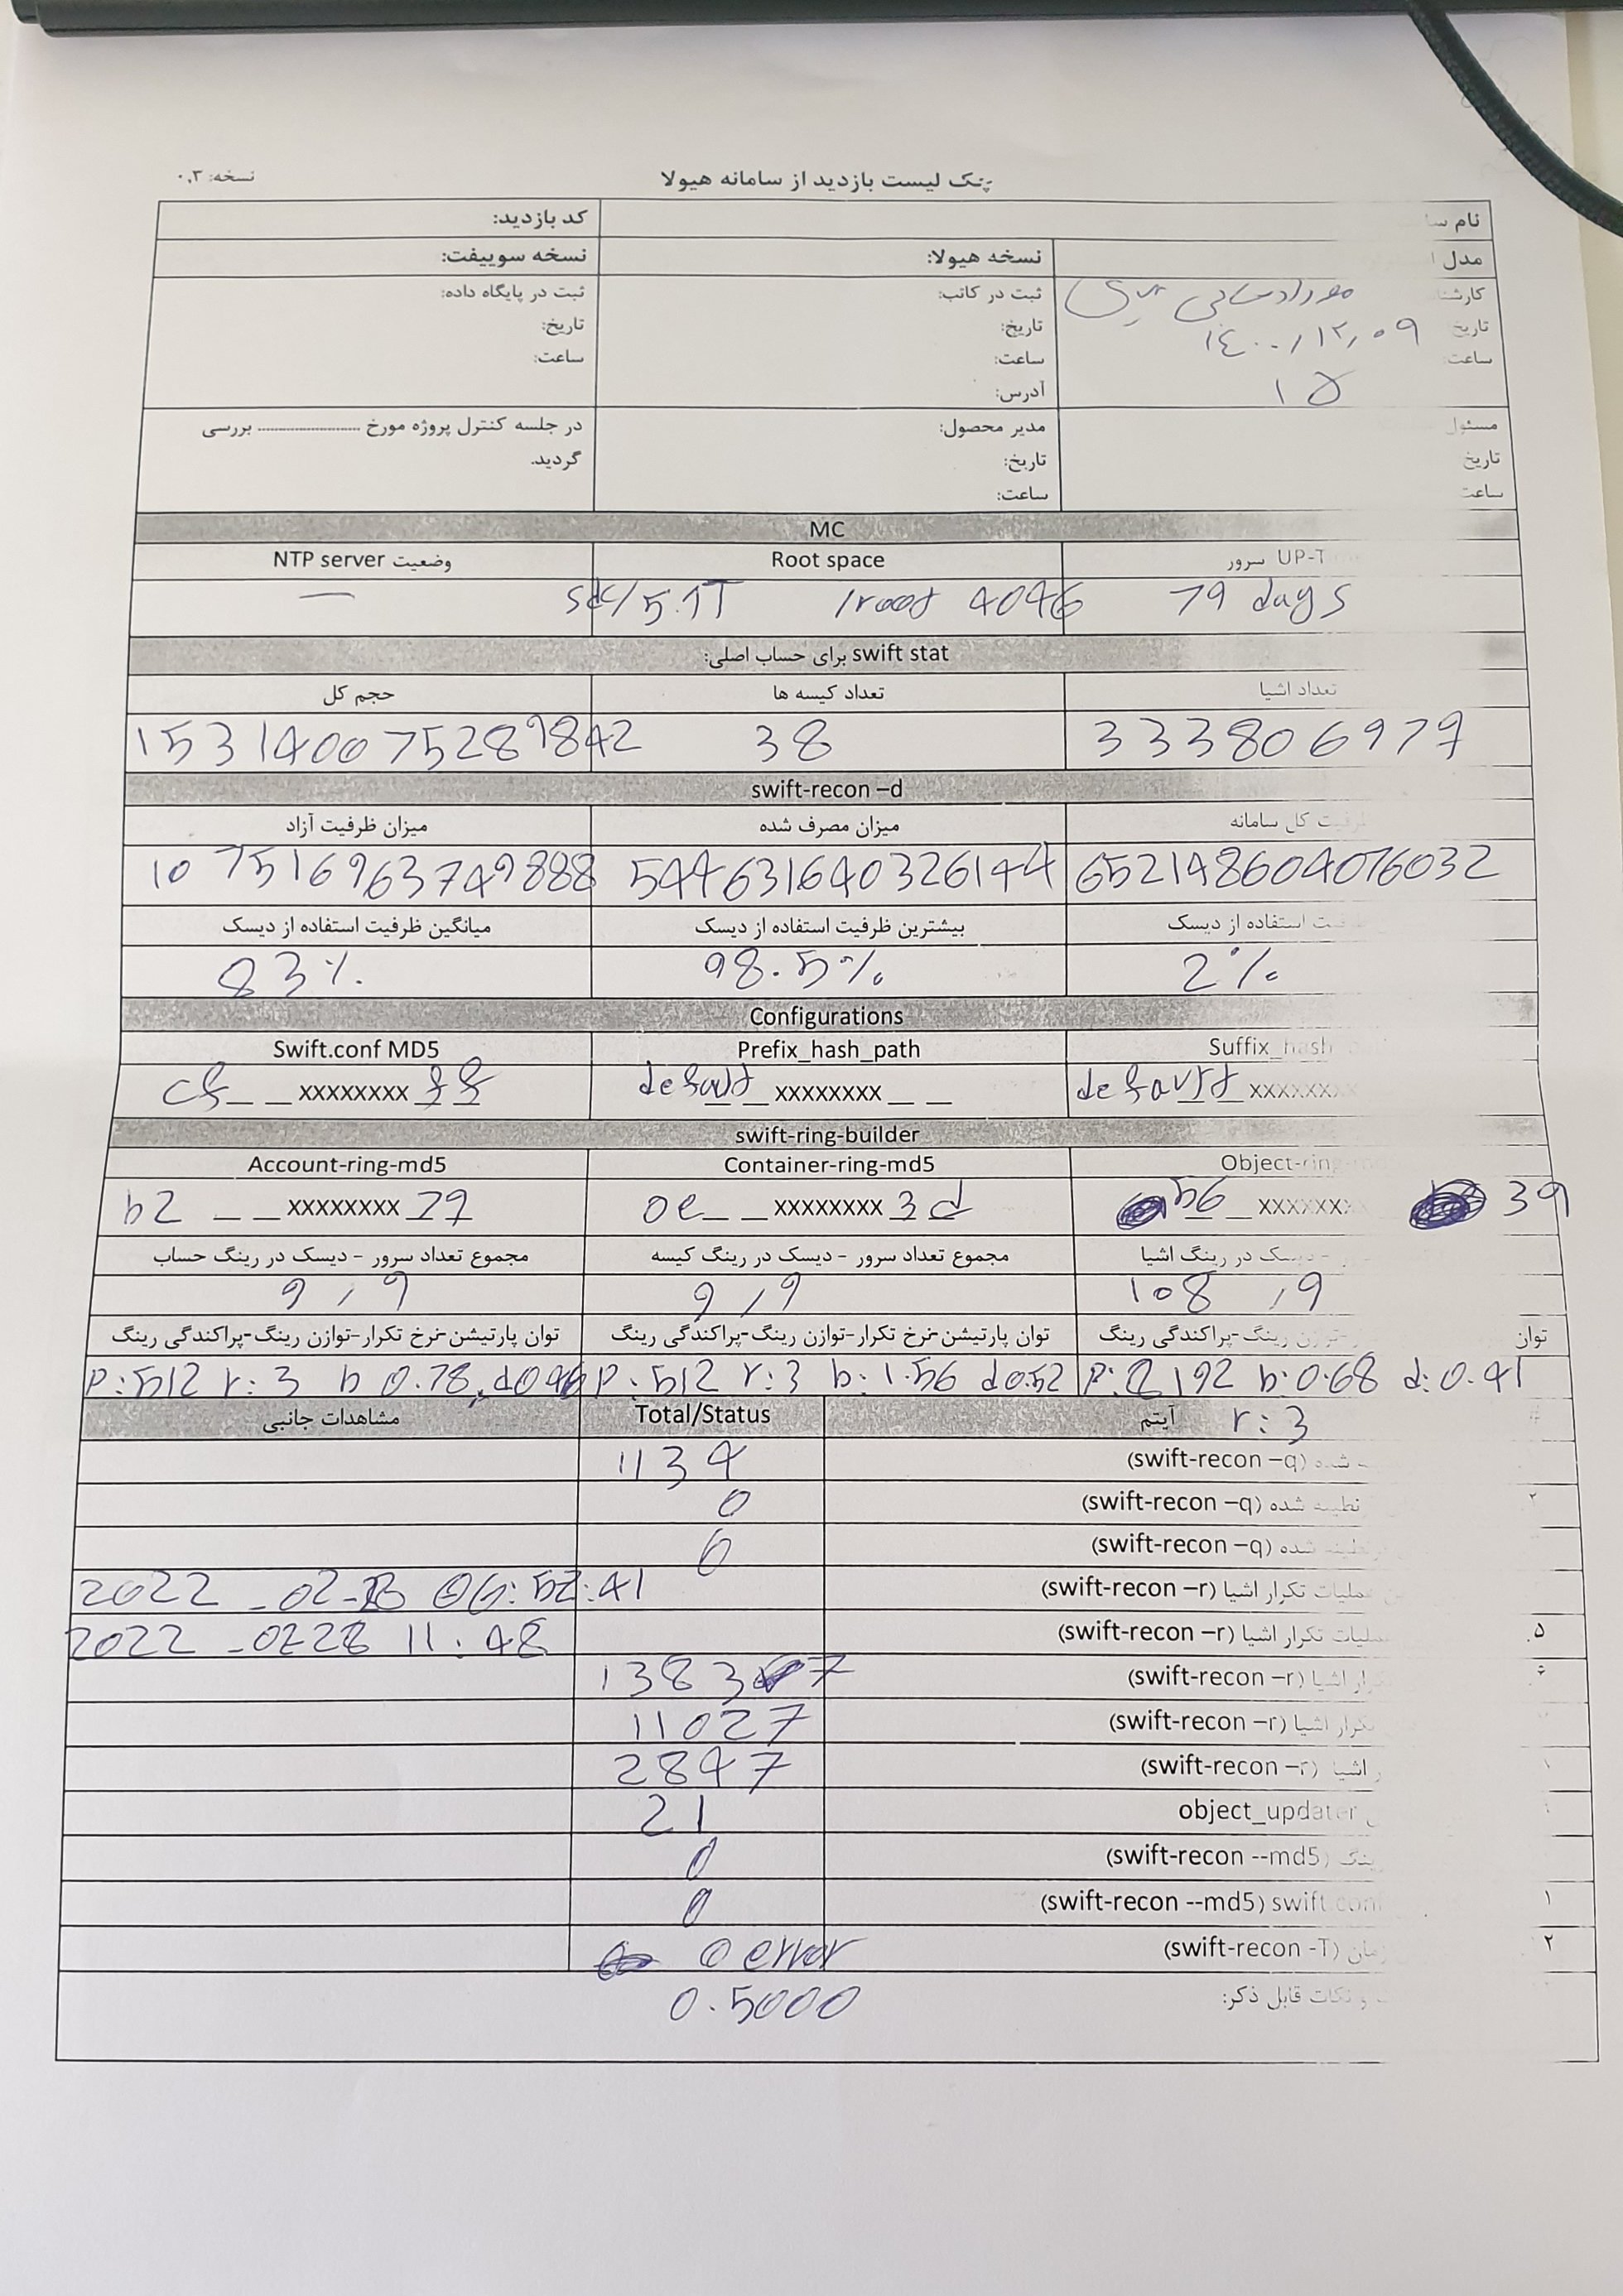 چک لیست بازدید از سامانه هیولا
نسخه: ۰,۳
نام
کد بازدید:
مدل
نسخه هیولا:
نسخه سوییفت:
ثبت در کاتب:
ثبت در پایگاه داده:
تاریخ ۱۴۰۰/۱۲/۰۹
تاریخ:
تاریخ:
ساعت: ۱۵
ساعت:
ساعت:
آدرس:
مسئول
مدیر محصول:
در جلسه کنترل پروژه مورخ ............ بررسی
تاریخ
تاریخ:
گردید.
ساعت
ساعت:
MC
سرور UP-T
Root space
وضعیت NTP server
79 days
/root 4096
sdc/5.1T
—
swift stat برای حساب اصلی:
تعداد اشیا
تعداد کیسه ها
حجم کل
333806979
38
15314007528 9842
swift-recon –d
ظرفیت کل سامانه
میزان مصرف شده
میزان ظرفیت آزاد
652148604076032
544631640326144
107516963749888
استفاده از دیسک
بیشترین ظرفیت استفاده از دیسک
میانگین ظرفیت استفاده از دیسک
2%
98.5%
83%
Configurations
Suffix_hash
Prefix_hash_path
Swift.conf MD5
default _ xxxxxxx
default _ xxxxxxxx _ _
cf_ _ xxxxxxxx ff
swift-ring-builder
Object-ring
Container-ring-md5
Account-ring-md5
b6 _ xxxxxxx 39
0e_ _ xxxxxxxx 3d
b2 _ _ xxxxxxxx 27
دیسک در رینگ اشیا
مجموع تعداد سرور – دیسک در رینگ کیسه
مجموع تعداد سرور – دیسک در رینگ حساب
108 , 9
9 , 9
9 , 9
توان توازن رینگ-پراکندگی رینگ
توان پارتیشن-نرخ تکرار-توازن رینگ-پراکندگی رینگ
توان پارتیشن-نرخ تکرار-توازن رینگ-پراکندگی رینگ
P: 8192 b:0.68 d:0.41
P:512 r:3 b:1.56 d0.52
P:512 r:3 b 0.78, d0.46
# آیتم r:3
Total/Status
مشاهدات جانبی
شده (swift-recon –q)
1134
۲ شده (swift-recon –q)
0
شده (swift-recon –q)
0
عملیات تکرار اشیا (swift-recon –r)
2022 _02- 06:52:41
۵. عملیات تکرار اشیا (swift-recon –r)
2022 _0228 11:48
تکرار اشیا (swift-recon –r)
13837
تکرار اشیا (swift-recon –r)
11027
اشیا (swift-recon –r)
2847
object_updater
21
رینگ (swift-recon --md5)
0
۱ swift.conf (swift-recon --md5)
0
۲ زمان (swift-recon -T)
0 error
و نکات قابل ذکر:
0.5000